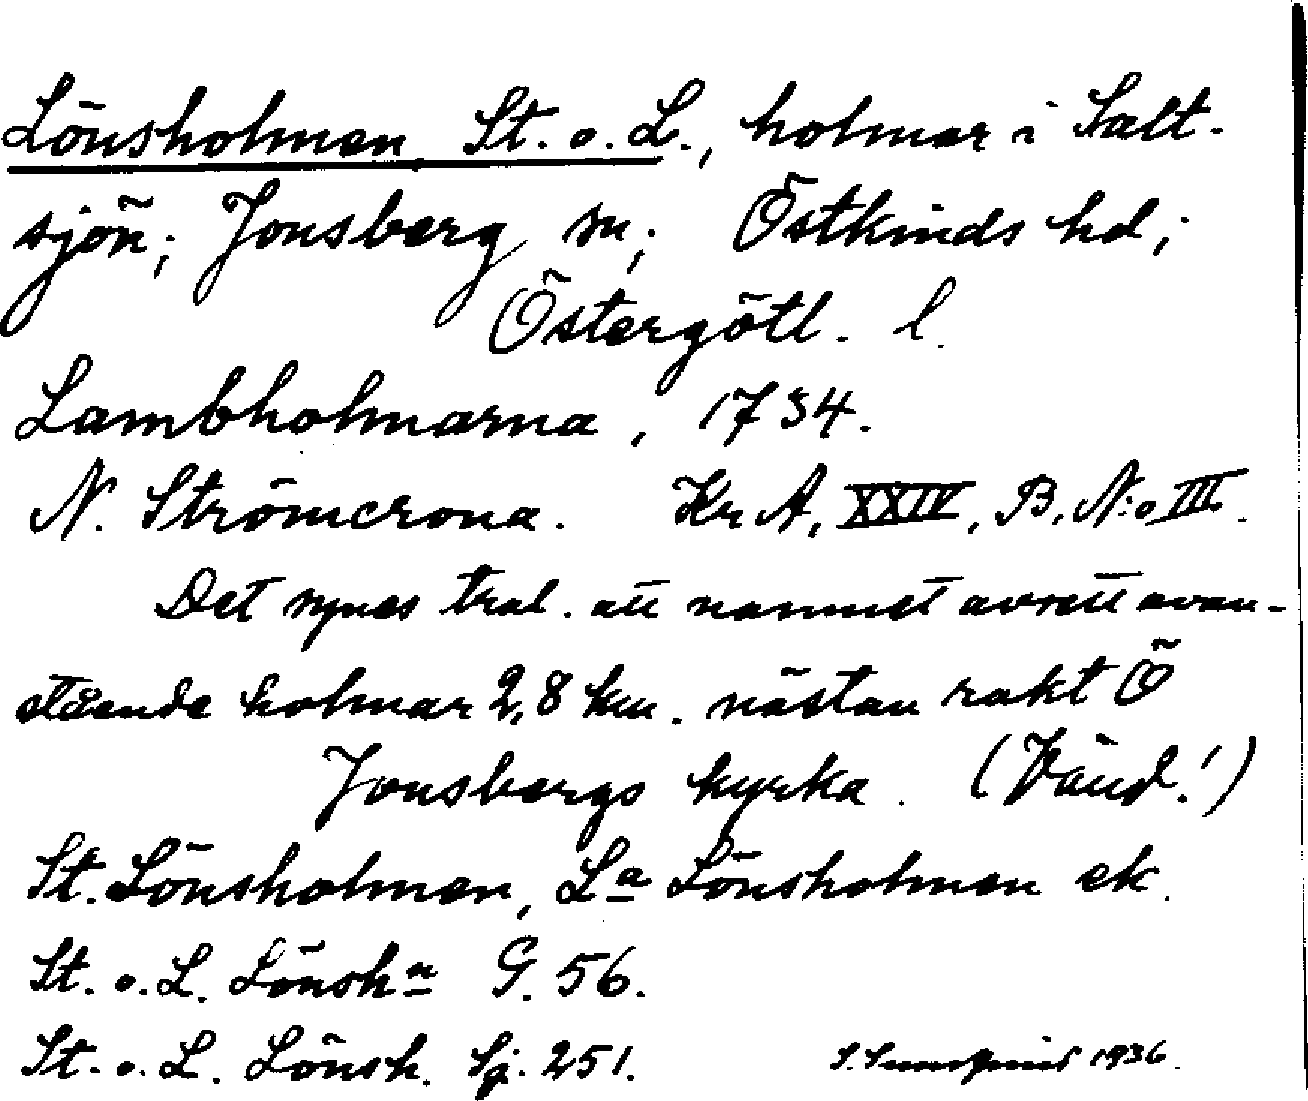 Lönsholmen, St. o. L., holmar i Salt-
sjön; Jonsberg sn; Östkinds hd;
Östergötl. l.
Lambholmarna, 1734.
N. Strömcrona. Kr A, XXIV, B. N:o III.
Det synes trol. att namnet avsett ovan-
stående holmar 2,8 km. nästan rakt Ö
Jonsbergs kyrka. (Vänd!)
St. Lönsholmen, La Lönsholmen ek.
St. o. L. Lönshn G. 56.
St. o. L. Lönsh. Sj. 251.
1936